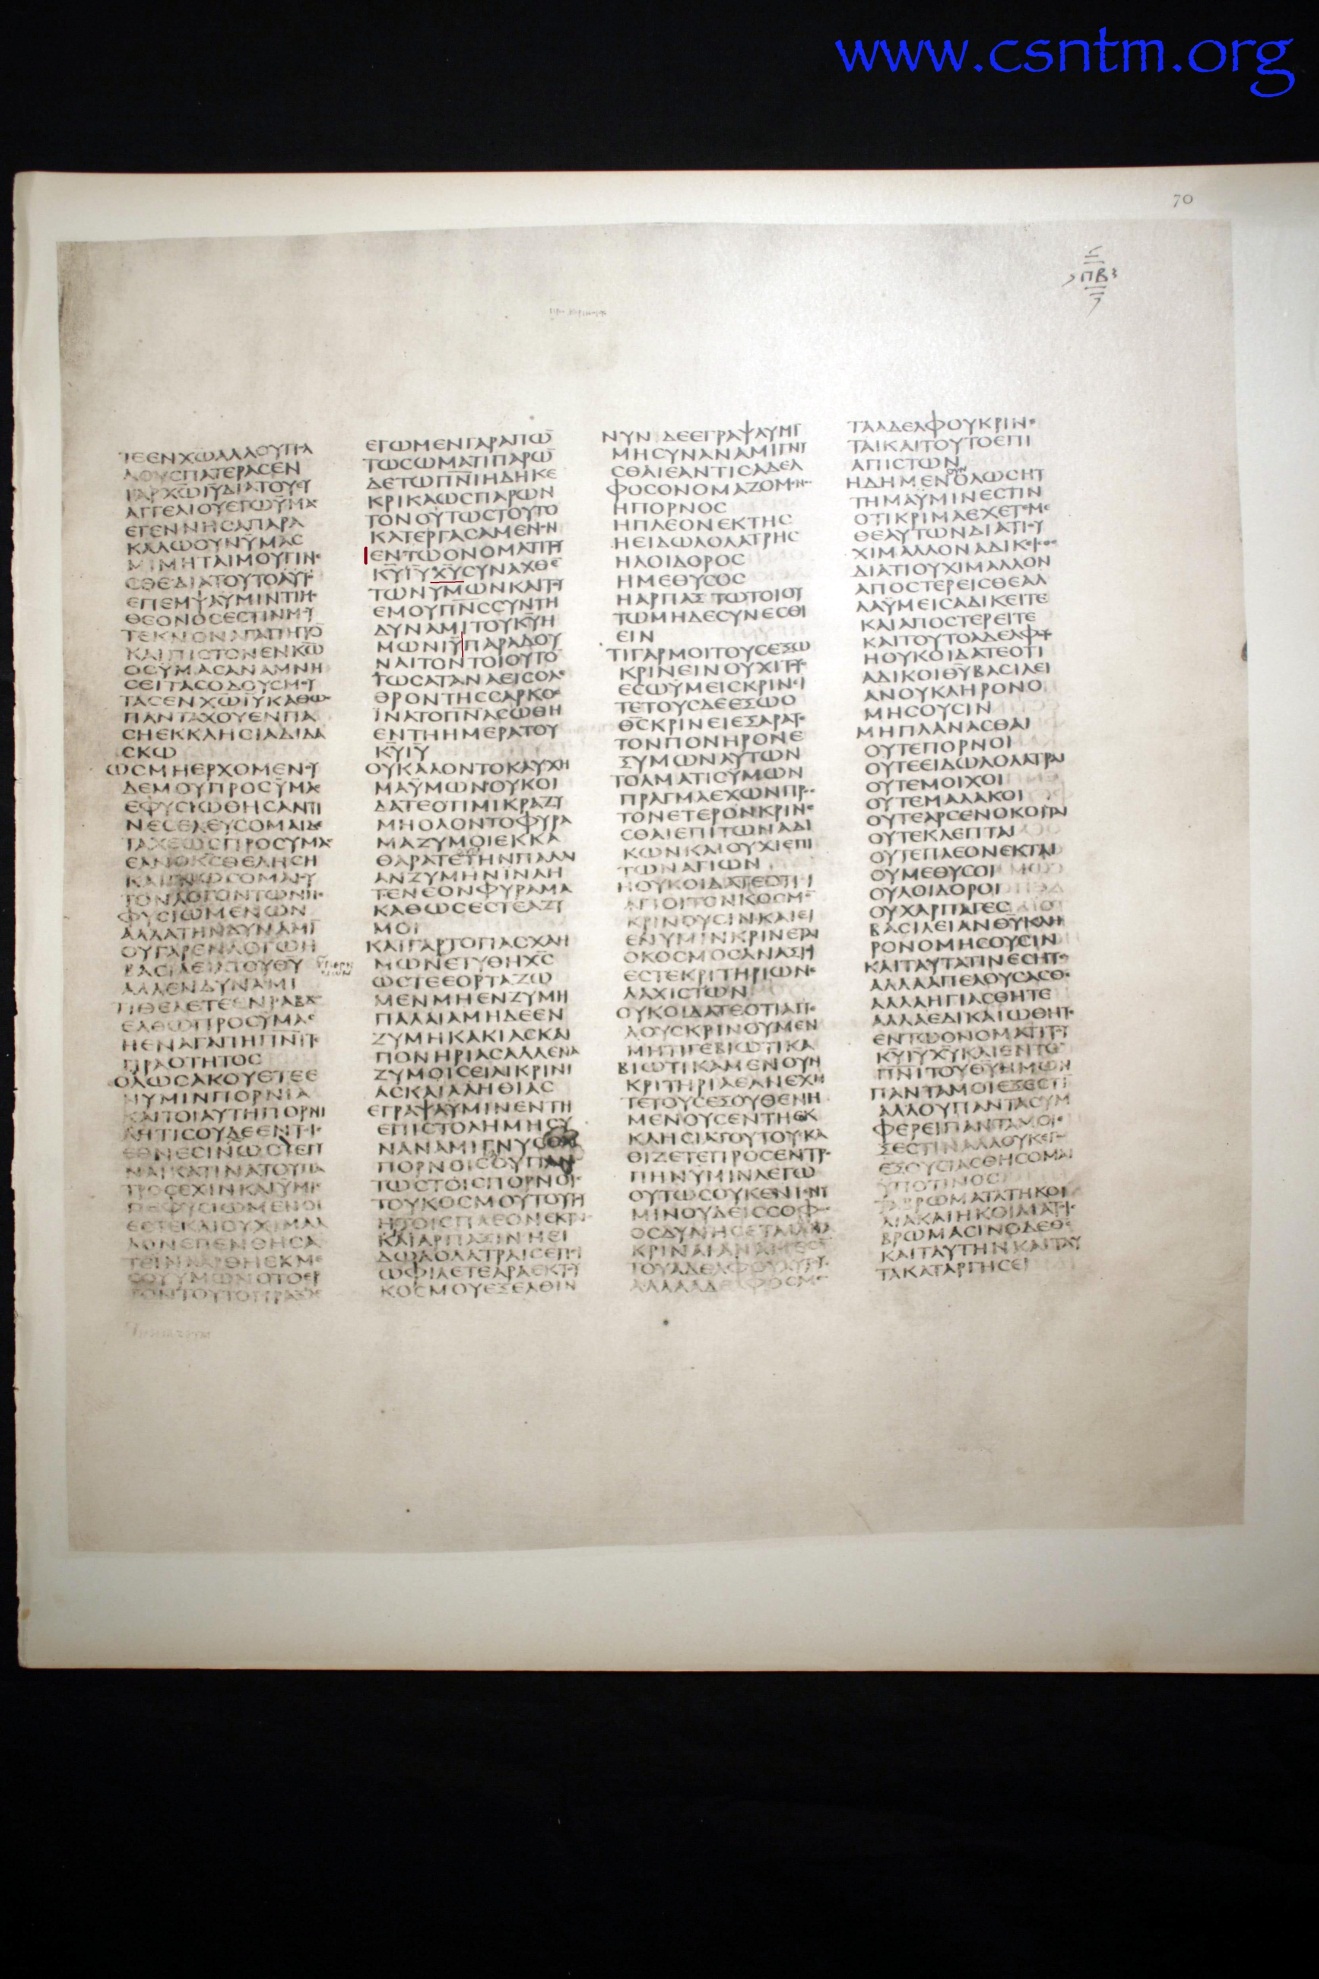 www.csntm.org
70
ΠΒ
ΑΓΓΕΛΙΟΥΕΓΩΫΜΑ
ΕΓΕΝΝΗΣΑΠΑΡΑ
ΚΑΛΩΟΥΝΫΜΑΣ
ΜΙΜΗΤΑΙΜΟΥΓΙΝ
ΕΠΕΜΨΑΫΜΙΝΤΙΜ
ΘΕΟΝΟΣΕΣΤΙΝΜΥ
ΤΕΚΝΟΝΑΓΑΠΗΤΟ
ΚΑΙΠΙΣΤΟΝΕΝΚΩ
ΟΣΫΜΑΣΑΝΑΜΝΗ
ΣΕΙΤΑΣΟΔΟΥΣΜΥ
ΤΑΣΕΝΧΩΙΥΚΑΘΩ
ΠΑΝΤΑΧΟΥΕΝΠΑ
ΣΗΕΚΚΛΗΣΙΑΔΙΔΑ
ΣΚΩ
ΩΣΜΗΕΡΧΟΜΕΝΥ
ΔΕΜΟΥΠΡΟΣΫΜΑ
ΕΦΥΣΙΩΘΗΣΑΝΤΙ
ΝΕΣΕΛΕΥΣΟΜΑΙΔΕ
ΤΑΧΕΩΣΠΡΟΣΫΜΑ
ΕΑΝΟΚΣΘΕΛΗΣΗ
ΚΑΙΓΝΩΣΟΜΑΙΟΥ
ΤΟΝΛΟΓΟΝΤΩΝΠΕ
ΦΥΣΙΩΜΕΝΩΝ
ΑΛΛΑΤΗΝΔΥΝΑΜΙ
ΟΥΓΑΡΕΝΛΟΓΩΗ
ΒΑΣΙΛΕΙΑΤΟΥΘΥ
ΑΛΛΕΝΔΥΝΑΜΙ
ΤΙΘΕΛΕΤΕΕΝΡΑΒΔ
ΕΛΘΩΠΡΟΣΫΜΑΣ
ΗΕΝΑΓΑΠΗΠΝΙΤΕ
ΠΡΑΟΤΗΤΟΣ
ΟΛΩΣΑΚΟΥΕΤΕΕ
ΝΥΜΙΝΠΟΡΝΙΑ
ΚΑΙΤΟΙΑΥΤΗΠΟΡΝΙ
ΑΗΤΙΣΟΥΔΕΕΝΤΙΣ
ΕΘΝΕΣΙΝΩΣΤΕΓΥ
ΝΑΙΚΑΤΙΝΑΤΟΥΠΑ
ΤΡΟΣΕΧΙΝΚΑΙΫΜΙΣ
ΠΕΦΥΣΙΩΜΕΝΟΙ
ΕΣΤΕΚΑΙΟΥΧΙΜΑΛ
ΛΟΝΕΠΕΝΘΗΣΑ
ΤΕΙΝΑΑΡΘΗΕΚΜΕ
ΣΟΥΫΜΩΝΟΤΟΕΡ
ΓΟΝΤΟΥΤΟΠΡΑΞΑΣ
ΕΓΩΜΕΝΓΑΡΑΠΩ
ΤΩΣΩΜΑΤΙΠΑΡΩ
ΔΕΤΩΠΝΙΗΔΗΚΕ
ΚΡΙΚΑΩΣΠΑΡΩΝ
ΤΟΝΟΥΤΩΣΤΟΥΤΟ
ΚΑΤΕΡΓΑΣΑΜΕΝΟΝ
ΕΝΤΩΟΝΟΜΑΤΙΤΟΥ
ΚΥΙΥΧΥΣΥΝΑΧΘΕ
ΤΩΝΫΜΩΝΚΑΙΤΟΥ
ΕΜΟΥΠΝΣΣΥΝΤΗ
ΔΥΝΑΜΙΤΟΥΚΥΗ
ΜΩΝΙΥΠΑΡΑΔΟΥ
ΝΑΙΤΟΝΤΟΙΟΥΤΟ
ΤΩΣΑΤΑΝΑΕΙΣΟΛΕ
ΘΡΟΝΤΗΣΣΑΡΚΟΣ
ΙΝΑΤΟΠΝΑΣΩΘΗ
ΕΝΤΗΗΜΕΡΑΤΟΥ
ΚΥΙΥ
ΟΥΚΑΛΟΝΤΟΚΑΥΧΗ
ΜΑΫΜΩΝΟΥΚΟΙ
ΔΑΤΕΟΤΙΜΙΚΡΑΖΥ
ΜΗΟΛΟΝΤΟΦΥΡΑ
ΜΑΖΥΜΟΙΕΚΚΑ
ΘΑΡΑΤΕΤΗΝΠΑΛΑΙ
ΑΝΖΥΜΗΝΙΝΑΗ
ΤΕΝΕΟΝΦΥΡΑΜΑ
ΚΑΘΩΣΕΣΤΕΑΖΥ
ΜΟΙ
ΚΑΙΓΑΡΤΟΠΑΣΧΑΗ
ΜΩΝΕΤΥΘΗΧΣ
ΩΣΤΕΕΟΡΤΑΖΩ
ΜΕΝΜΗΕΝΖΥΜΗ
ΠΑΛΑΙΑΜΗΔΕΕΝ
ΖΥΜΗΚΑΚΙΑΣΚΑΙ
ΠΟΝΗΡΙΑΣΑΛΛΕΝΑ
ΖΥΜΟΙΣΕΙΛΙΚΡΙΝΙ
ΑΣΚΑΙΑΛΗΘΙΑΣ
ΕΓΡΑΨΑΫΜΙΝΕΝΤΗ
ΕΠΙΣΤΟΛΗΜΗΣΥ
ΝΑΝΑΜΙΓΝΥΣΘΑΙ
ΠΟΡΝΟΙΣΟΥΠΑΝ
ΤΩΣΤΟΙΣΠΟΡΝΟΙΣ
ΤΟΥΚΟΣΜΟΥΤΟΥΤΟΥ
ΗΤΟΙΣΠΛΕΟΝΕΚΤΑΙΣ
ΚΑΙΑΡΠΑΞΙΝΗΕΙ
ΔΩΛΟΛΑΤΡΑΙΣΕΠΙ
ΩΦΙΛΕΤΕΑΡΑΕΚΤΟΥ
ΚΟΣΜΟΥΕΞΕΛΘΙΝ
ΝΥΝΔΕΕΓΡΑΨΑΫΜΙ
ΜΗΣΥΝΑΝΑΜΙΓΝΥ
ΣΘΑΙΕΑΝΤΙΣΑΔΕΛ
ΦΟΣΟΝΟΜΑΖΟΜΕΝΟΣ
ΗΠΟΡΝΟΣ
ΗΠΛΕΟΝΕΚΤΗΣ
ΗΕΙΔΩΛΟΛΑΤΡΗΣ
ΗΛΟΙΔΟΡΟΣ
ΗΜΕΘΥΣΟΣ
ΗΑΡΠΑΞΤΩΤΟΙΟΥ
ΤΩΜΗΔΕΣΥΝΕΣΘΙ
ΕΙΝ
ΤΙΓΑΡΜΟΙΤΟΥΣΕΞΩ
ΚΡΙΝΕΙΝΟΥΧΙΤΟΥΣ
ΕΣΩΫΜΕΙΣΚΡΙΝΕΤΕ
ΤΕΤΟΥΣΔΕΕΞΩΟ
ΘΣΚΡΙΝΕΙΕΞΑΡΑΤΕ
ΤΟΝΠΟΝΗΡΟΝΕ
ΞΥΜΩΝΑΥΤΩΝ
ΤΟΛΜΑΤΙΣΫΜΩΝ
ΠΡΑΓΜΑΕΧΩΝΠΡΟΣ
ΤΟΝΕΤΕΡΟΝΚΡΙΝΕ
ΣΘΑΙΕΠΙΤΩΝΑΔΙ
ΚΩΝΚΑΙΟΥΧΙΕΠΙ
ΤΩΝΑΓΙΩΝ
ΗΟΥΚΟΙΔΑΤΕΟΤΙΟΙ
ΑΓΙΟΙΤΟΝΚΟΣΜΟΝ
ΚΡΙΝΟΥΣΙΝΚΑΙΕΙ
ΕΝΥΜΙΝΚΡΙΝΕΤΑΙ
ΟΚΟΣΜΟΣΑΝΑΞΙΟΙ
ΕΣΤΕΚΡΙΤΗΡΙΩΝΕ
ΛΑΧΙΣΤΩΝ
ΟΥΚΟΙΔΑΤΕΟΤΙΑΓΓΕ
ΛΟΥΣΚΡΙΝΟΥΜΕΝ
ΜΗΤΙΓΕΒΙΩΤΙΚΑ
ΒΙΩΤΙΚΑΜΕΝΟΥΝ
ΚΡΙΤΗΡΙΑΕΑΝΕΧΗ
ΤΕΤΟΥΣΕΞΟΥΘΕΝΗ
ΜΕΝΟΥΣΕΝΤΗΕΚ
ΚΛΗΣΙΑΤΟΥΤΟΥΣΚΑ
ΘΙΖΕΤΕΠΡΟΣΕΝΤΡΟ
ΠΗΝΥΜΙΝΛΕΓΩ
ΟΥΤΩΣΟΥΚΕΝΙΕΝΥ
ΜΙΝΟΥΔΕΙΣΣΟΦΟΣ
ΟΣΔΥΝΗΣΕΤΑΙΔΙΑ
ΚΡΙΝΑΙΑΝΑΜΕΣΟ
ΤΟΥΑΔΕΛΦΟΥΑΥΤΟΥ
ΑΛΛΑΑΔΕΛΦΟΣΜΕ
ΤΑΑΔΕΛΦΟΥΚΡΙΝΕ
ΤΑΙΚΑΙΤΟΥΤΟΕΠΙ
ΑΠΙΣΤΩΝ
ΗΔΗΜΕΝΟΛΩΣΗΤ
ΤΗΜΑΫΜΙΝΕΣΤΙΝ
ΟΤΙΚΡΙΜΑΕΧΕΤΕΜΕ
ΘΕΑΥΤΩΝΔΙΑΤΙΟΥ
ΧΙΜΑΛΛΟΝΑΔΙΚΕΙΣΘΕ
ΔΙΑΤΙΟΥΧΙΜΑΛΛΟΝ
ΑΠΟΣΤΕΡΕΙΣΘΕΑΛ
ΛΑΫΜΕΙΣΑΔΙΚΕΙΤΕ
ΚΑΙΑΠΟΣΤΕΡΕΙΤΕ
ΚΑΙΤΟΥΤΟΑΔΕΛΦΟΥΣ
ΗΟΥΚΟΙΔΑΤΕΟΤΙ
ΑΔΙΚΟΙΘΥΒΑΣΙΛΕΙ
ΑΝΟΥΚΛΗΡΟΝΟ
ΜΗΣΟΥΣΙΝ
ΜΗΠΛΑΝΑΣΘΑΙ
ΟΥΤΕΠΟΡΝΟΙ
ΟΥΤΕΕΙΔΩΛΟΛΑΤΡΑΙ
ΟΥΤΕΜΟΙΧΟΙ
ΟΥΤΕΜΑΛΑΚΟΙ
ΟΥΤΕΑΡΣΕΝΟΚΟΙΤΑΙ
ΟΥΤΕΚΛΕΠΤΑΙ
ΟΥΤΕΠΛΕΟΝΕΚΤΑΙ
ΟΥΜΕΘΥΣΟΙ
ΟΥΛΟΙΔΟΡΟΙ
ΟΥΧΑΡΠΑΓΕΣ
ΒΑΣΙΛΕΙΑΝΘΥΚΛΗ
ΡΟΝΟΜΗΣΟΥΣΙΝ
ΚΑΙΤΑΥΤΑΤΙΝΕΣΗΤΕ
ΑΛΛΑΑΠΕΛΟΥΣΑΣΘΕ
ΑΛΛΑΗΓΙΑΣΘΗΤΕ
ΑΛΛΑΕΔΙΚΑΙΩΘΗΤΕ
ΕΝΤΩΟΝΟΜΑΤΙΤΟΥ
ΚΥΙΥΧΥΚΑΙΕΝΤΩ
ΠΝΙΤΟΥΘΥΗΜΩΝ
ΠΑΝΤΑΜΟΙΕΞΕΣΤΙ
ΑΛΛΟΥΠΑΝΤΑΣΥΜ
ΦΕΡΕΙΠΑΝΤΑΜΟΙΕ
ΞΕΣΤΙΝΑΛΛΟΥΚΕΓΩ
ΕΞΟΥΣΙΑΣΘΗΣΟΜΑΙ
ΥΠΟΤΙΝΟΣ
ΤΑΒΡΩΜΑΤΑΤΗΚΟΙ
ΛΙΑΚΑΙΗΚΟΙΛΙΑΤΟΙΣ
ΒΡΩΜΑΣΙΝΟΔΕΘΣ
ΚΑΙΤΑΥΤΗΝΚΑΙΤΑΥ
ΤΑΚΑΤΑΡΓΗΣΕΙ